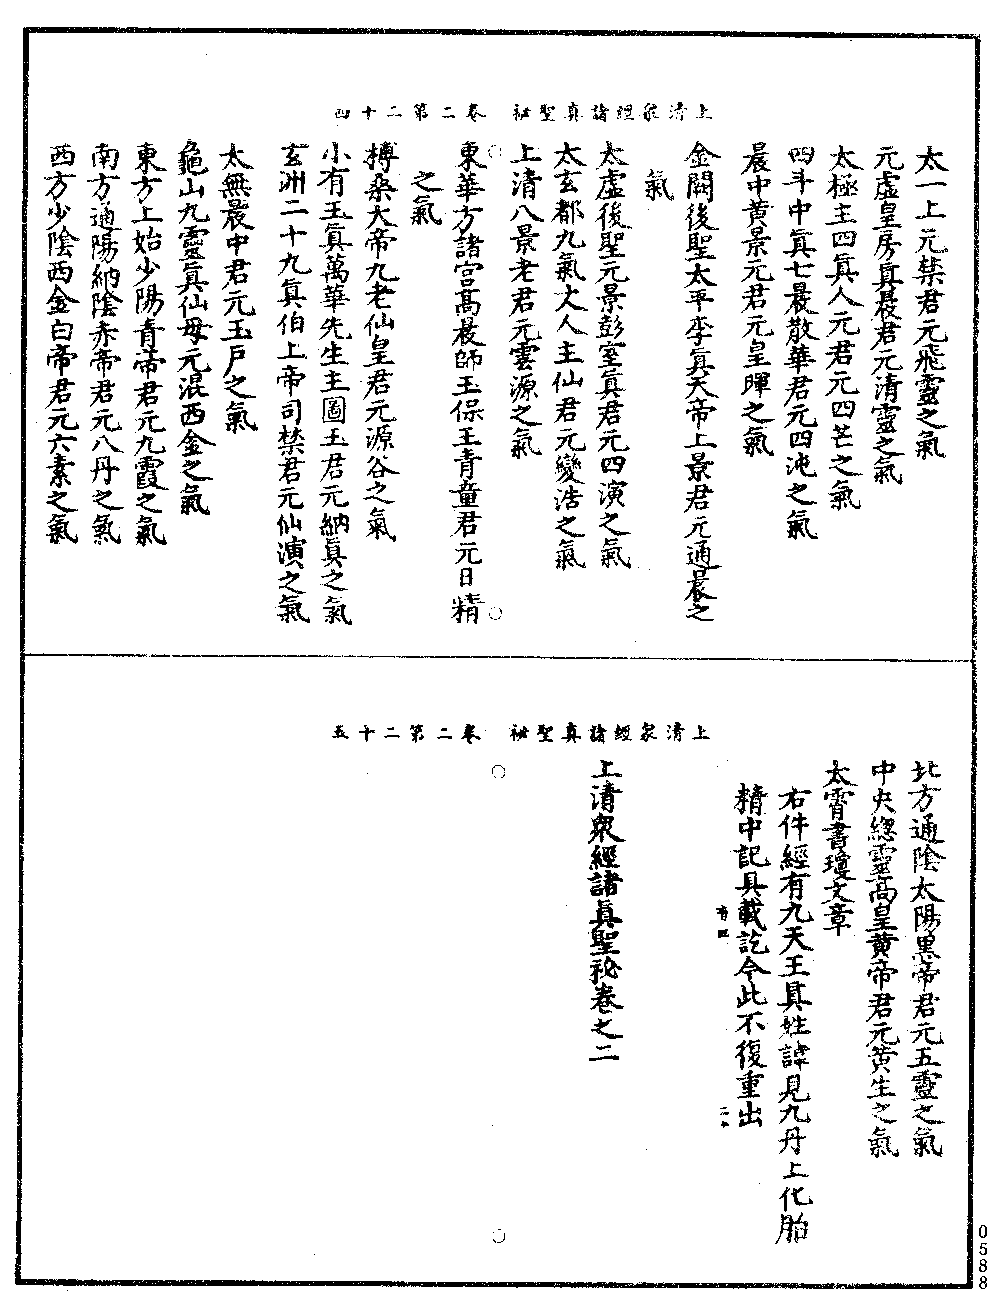 上清衆經諸真聖祕　卷二第二十四
太一上元禁君元飛靈之氣
元虛皇房真晨君元清靈之氣
太極主四真人元君元四芒之氣
四斗中真七晨散華君元四沌之氣
晨中黄景元君元皇暉之氣
金闕後聖太平李真天帝上景君元通晨之
氣
太虛後聖元景彭室真君元四演之氣
太玄都九氣丈人主仙君元變浩之氣
上清八景老君元雲源之氣
東華方諸宮高晨師玉保王青童君元日精
之氣
搏桑大帝九老仙皇君元源谷之氣
小有玉真萬華先生主圖玉君元納真之氣
玄洲二十九真伯上帝司禁君元仙演之氣
太無晨中君元玉戶之氣
龜山九靈真仙母元混西金之氣
東方上始少陽青帝君元九霞之氣
南方通陽納陰赤帝君元八丹之氣
西方少陰西金白帝君元六素之氣
上清衆經諸真聖祕　卷二第二十五
北方通陰太陽黑帝君元五靈之氣
中央總靈高皇黄帝君元黄生之氣
太霄書瓊文章
右件經有九天王具姓諱見九丹上化胎
精中記具載訖今此不復重出
上清衆經諸真聖祕卷之二
0588